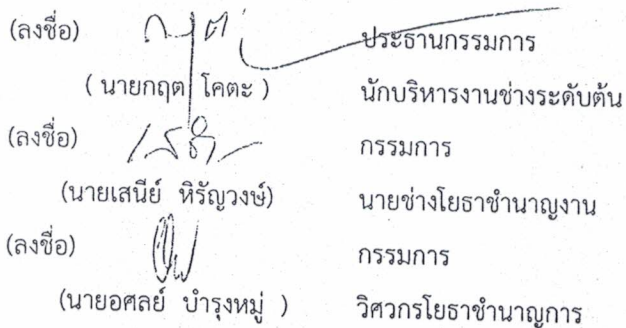 (ลงชื่อ) ประธานกรรมการ
( นายกฤต โคตะ ) นักบริหารงานช่างระดับต้น
(ลงชื่อ) กรรมการ
(นายเสนีย์ หิรัญวงษ์) นายช่างโยธาชำนาญงาน
(ลงชื่อ) กรรมการ
(นายอศลย์ บำรุงหมู่ ) วิศวกรโยธาชำนาญการ